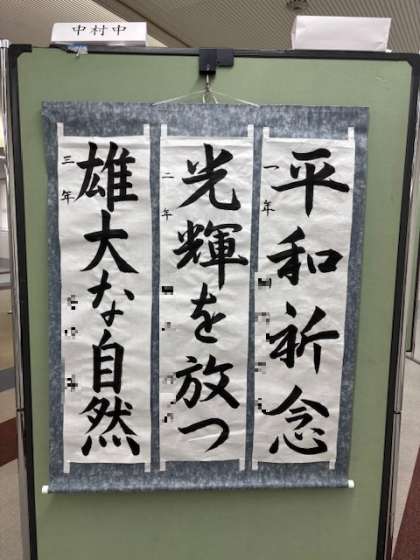 中村中
平和祈念
一年
光輝を放つ
二年
雄大な自然
三年